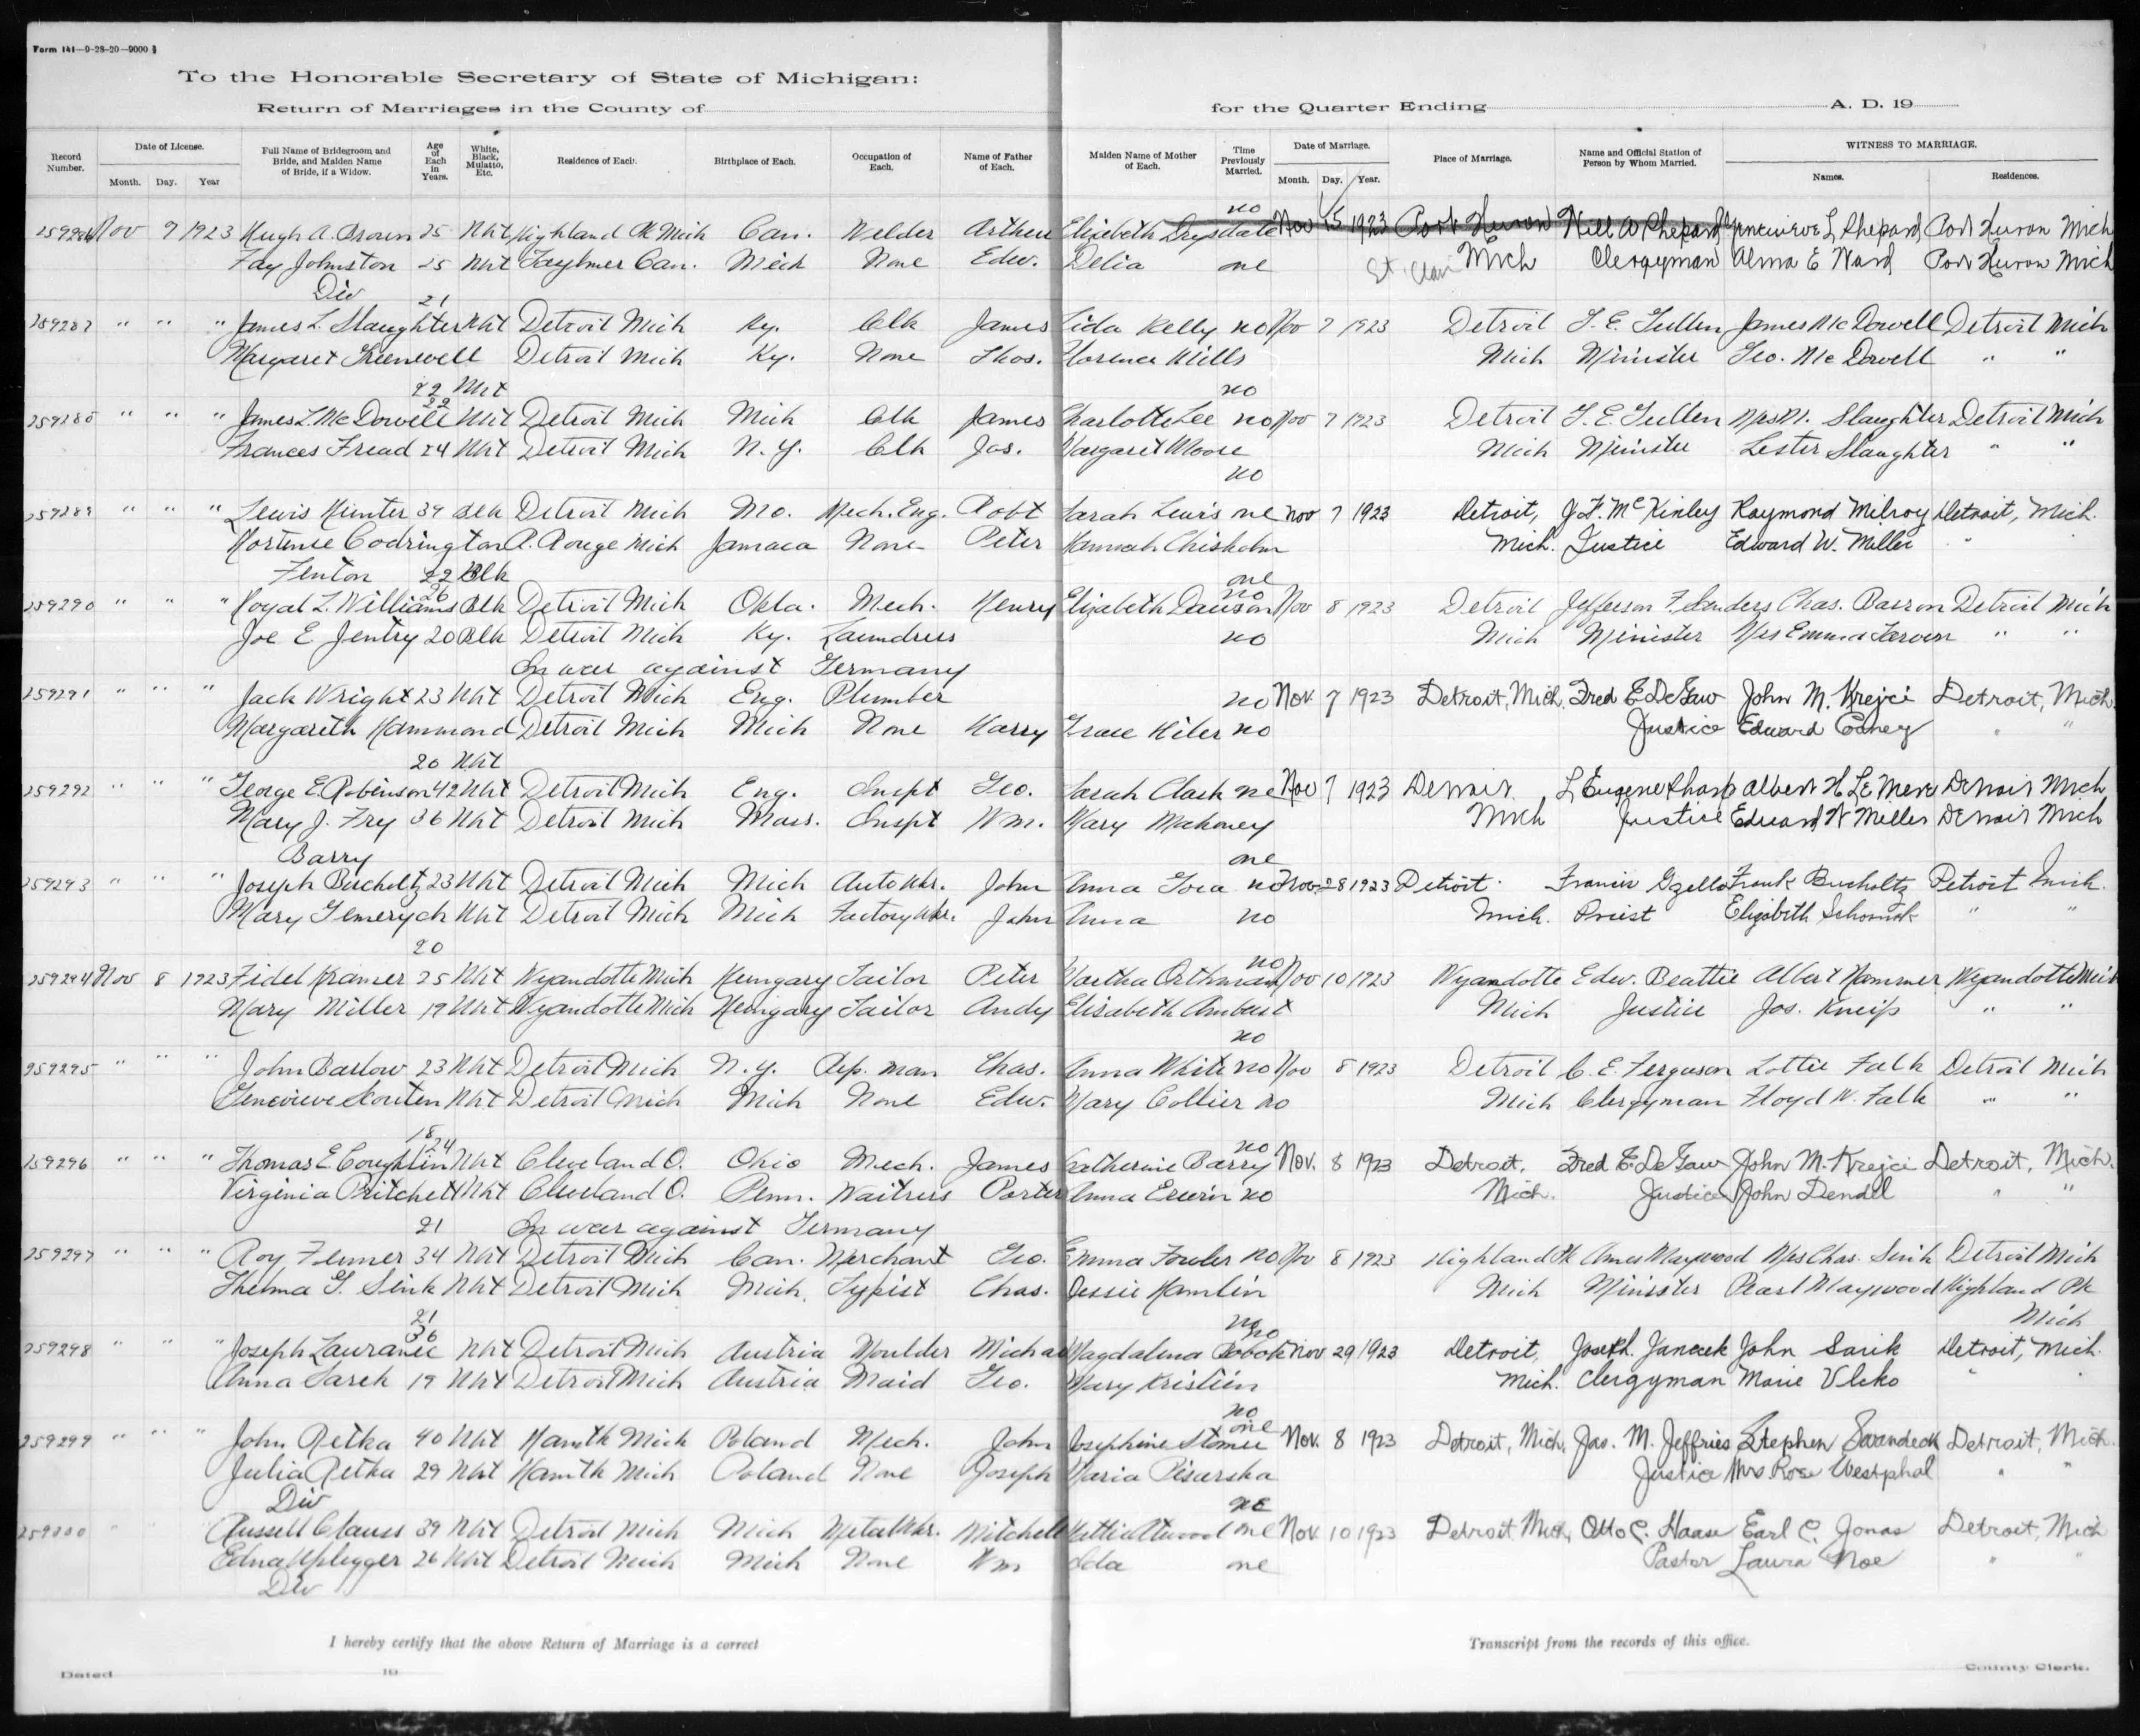 Form 141—9-28-20—9000
To the Honorable Secretary of State of Michigan:
Return of Marriages in the County of for the Quarter Ending A. D. 19
Record Number. Date of License. Month. Day. Year Full Name of Bridegroom and Bride, and Maiden Name of Bride, if a Widow. Age of Each in Years. White, Black, Mulatto, Etc. Residence of Each. Birthplace of Each. Occupation of Each. Name of Father of Each. Maiden Name of Mother of Each. Time Previously Married. Date of Marriage. Month. Day. Year. Place of Marriage. Name and Official Station of Person by Whom Married. WITNESS TO MARRIAGE. Names. Residences.
no
Nov 7 1923 Hugh A. Brown 25 Wht Highland Pk Mich Can. Welder Arthur Elizabeth Drysdale Nov 15 1923 Port Huron Will A Shepard Genevieve L Shepard Port Huron Mich
Fay Johnston 25 Wht Can. Mich None Edw. Delia one St Clair Mich Clergyman Alma E Ward Port Huron Mich
Div 21
259287 " " " James L. Slaughter Wht Detroit Mich Ky. Clk James Lida Kelly no Nov 7 1923 Detroit T. E. Gullen James McDowell Detroit Mich
Margaret Greenwell Detroit Mich Ky. None Thos. Florence Mills Mich Minister Geo. McDowell " "
22 Wht no
22
" " " James L. McDowell Wht Detroit Mich Mich Clk James Charlotte Lee no Nov 7 1923 Detroit T. E. Gullen Mrs M. Slaughter Detroit Mich
Frances Fread 24 Wht Detroit Mich N.Y. Clk Jas. Margaret Moore Mich Minister Lester Slaughter " "
no
259289 " " " Lewis Hunter 39 Blk Detroit Mich Mo. Mech. Eng. Robt Sarah Lewis one Nov 7 1923 Detroit, J. F. McKinley Raymond Milroy Detroit, Mich.
Hortense Codrington R. Rouge Mich Jamaca None Peter Hannah Chisholm Mich. Justice Edward W. Miller "
Fenton 22 Blk one
26 no
259290 " " " Royal L. Williams Blk Detroit Mich Okla. Mech. Henry Elizabeth Dawson Nov 8 1923 Detroit Jefferson F. Sanders Chas. Barron Detroit Mich
Joe E Jentry 20 Blk Detroit Mich Ky. Laundress no Mich Minister Mrs Emma " "
In war against Germany
259291 " " " Jack Wright 23 Wht Detroit Mich Eng. Plumber no Nov. 7 1923 Detroit, Mich. Fred E DeGaw John M. Krejci Detroit, Mich.
Margareth Hammond Detroit Mich Mich None Harry Grace Hiler no Justice Edward " "
20 Wht
259292 " " " George E. Robinson 42 Wht Detroit Mich Eng. Inspt Geo. Sarah Clark one Nov 7 1923 Detroit L Eugene Sharp Albert H Le Mere Detroit Mich
Mary J. Fry 36 Wht Detroit Mich Mass. Inspt Wm. Mary Mahoney Mich Justice Edward W Miller Detroit Mich
Barry one
259293 " " " Joseph Bucholtz 23 Wht Detroit Mich Mich Auto Wkr. John Anna no Nov. 28 1923 Detroit Francis Gzella Frank Bucholtz Detroit Mich.
Mary Gemerych Wht Detroit Mich Mich Factory Wkr. John Anna no Mich. Priest Elizabeth " "
20
no
259294 Nov 8 1923 Fidel Kramer 25 Wht Wyandotte Mich Hungary Tailor Peter Martha Orthmann Nov 10 1923 Wyandotte Edw. Beattie Albert Hammer Wyandotte Mich
Mary Miller 19 Wht Wyandotte Mich Hungary Tailor Andy Elisabeth Mich Justice Jos. Kneip " "
no
259295 " " " John Barlow 23 Wht Detroit Mich N.Y. Rep. man Chas. Anna White no Nov 8 1923 Detroit C. E. Ferguson Lottie Falk Detroit Mich
Genevieve Scouten Wht Detroit Mich Mich None Edw. Mary Collier no Mich Clergyman Floyd W. Falk " "
18
24 no
259296 " " " Thomas E. Coughlin Wht Cleveland O. Ohio Mech. James Catherine Barry Nov. 8 1923 Detroit, Fred E. DeGaw John M. Krejci Detroit, Mich.
Virginia Pritchett Wht Cleveland O. Penn. Waitress Porter Anna Erwin no Mich. Justice John Dendel " "
21 In war against Germany
259297 " " " Roy Fenner 34 Wht Detroit Mich Can. Merchant Geo. Emma Fowler no Nov 8 1923 Highland Pk Amos Maywood Mrs Chas. Sink Detroit Mich
Thelma G. Sink Wht Detroit Mich Mich. Typist Chas. Jessie Hamlin Mich Minister Pearl Maywood Highland Pk
21 no Mich
36 no
259298 " " " Joseph Lauranec Wht Detroit Mich Austria Moulder Michael Magdalena Nov 29 1923 Detroit, Joseph Janacek John Sarik Detroit, Mich.
Anna Sarek 19 Wht Detroit Mich Austria Maid Geo. Mary Kristin Mich. Clergyman Marie Vlcko "
no
one
259299 " " " John Retka 40 Wht Hamtk Mich Poland Mech. John Josephine Nov. 8 1923 Detroit, Mich. Jas. M. Jeffries Stephen Detroit, Mich.
Julia Retka 29 Wht Hamtk Mich Poland None Joseph Maria Pisarska Justice Mrs Rose Westphal " "
Div one
259300 " " " Russell Clauss 39 Wht Detroit Mich Mich Metal Wkr. Mitchell Hattie Atwood one Nov. 10 1923 Detroit Mich, Otto C. Haase Earl C. Jonas Detroit, Mich
Edna Uplegger 26 Wht Detroit Mich Mich None Wm Ida one Pastor Laura Noe " "
Div
I hereby certify that the above Return of Marriage is a correct Transcript from the records of this office.
Dated 19 County Clerk.